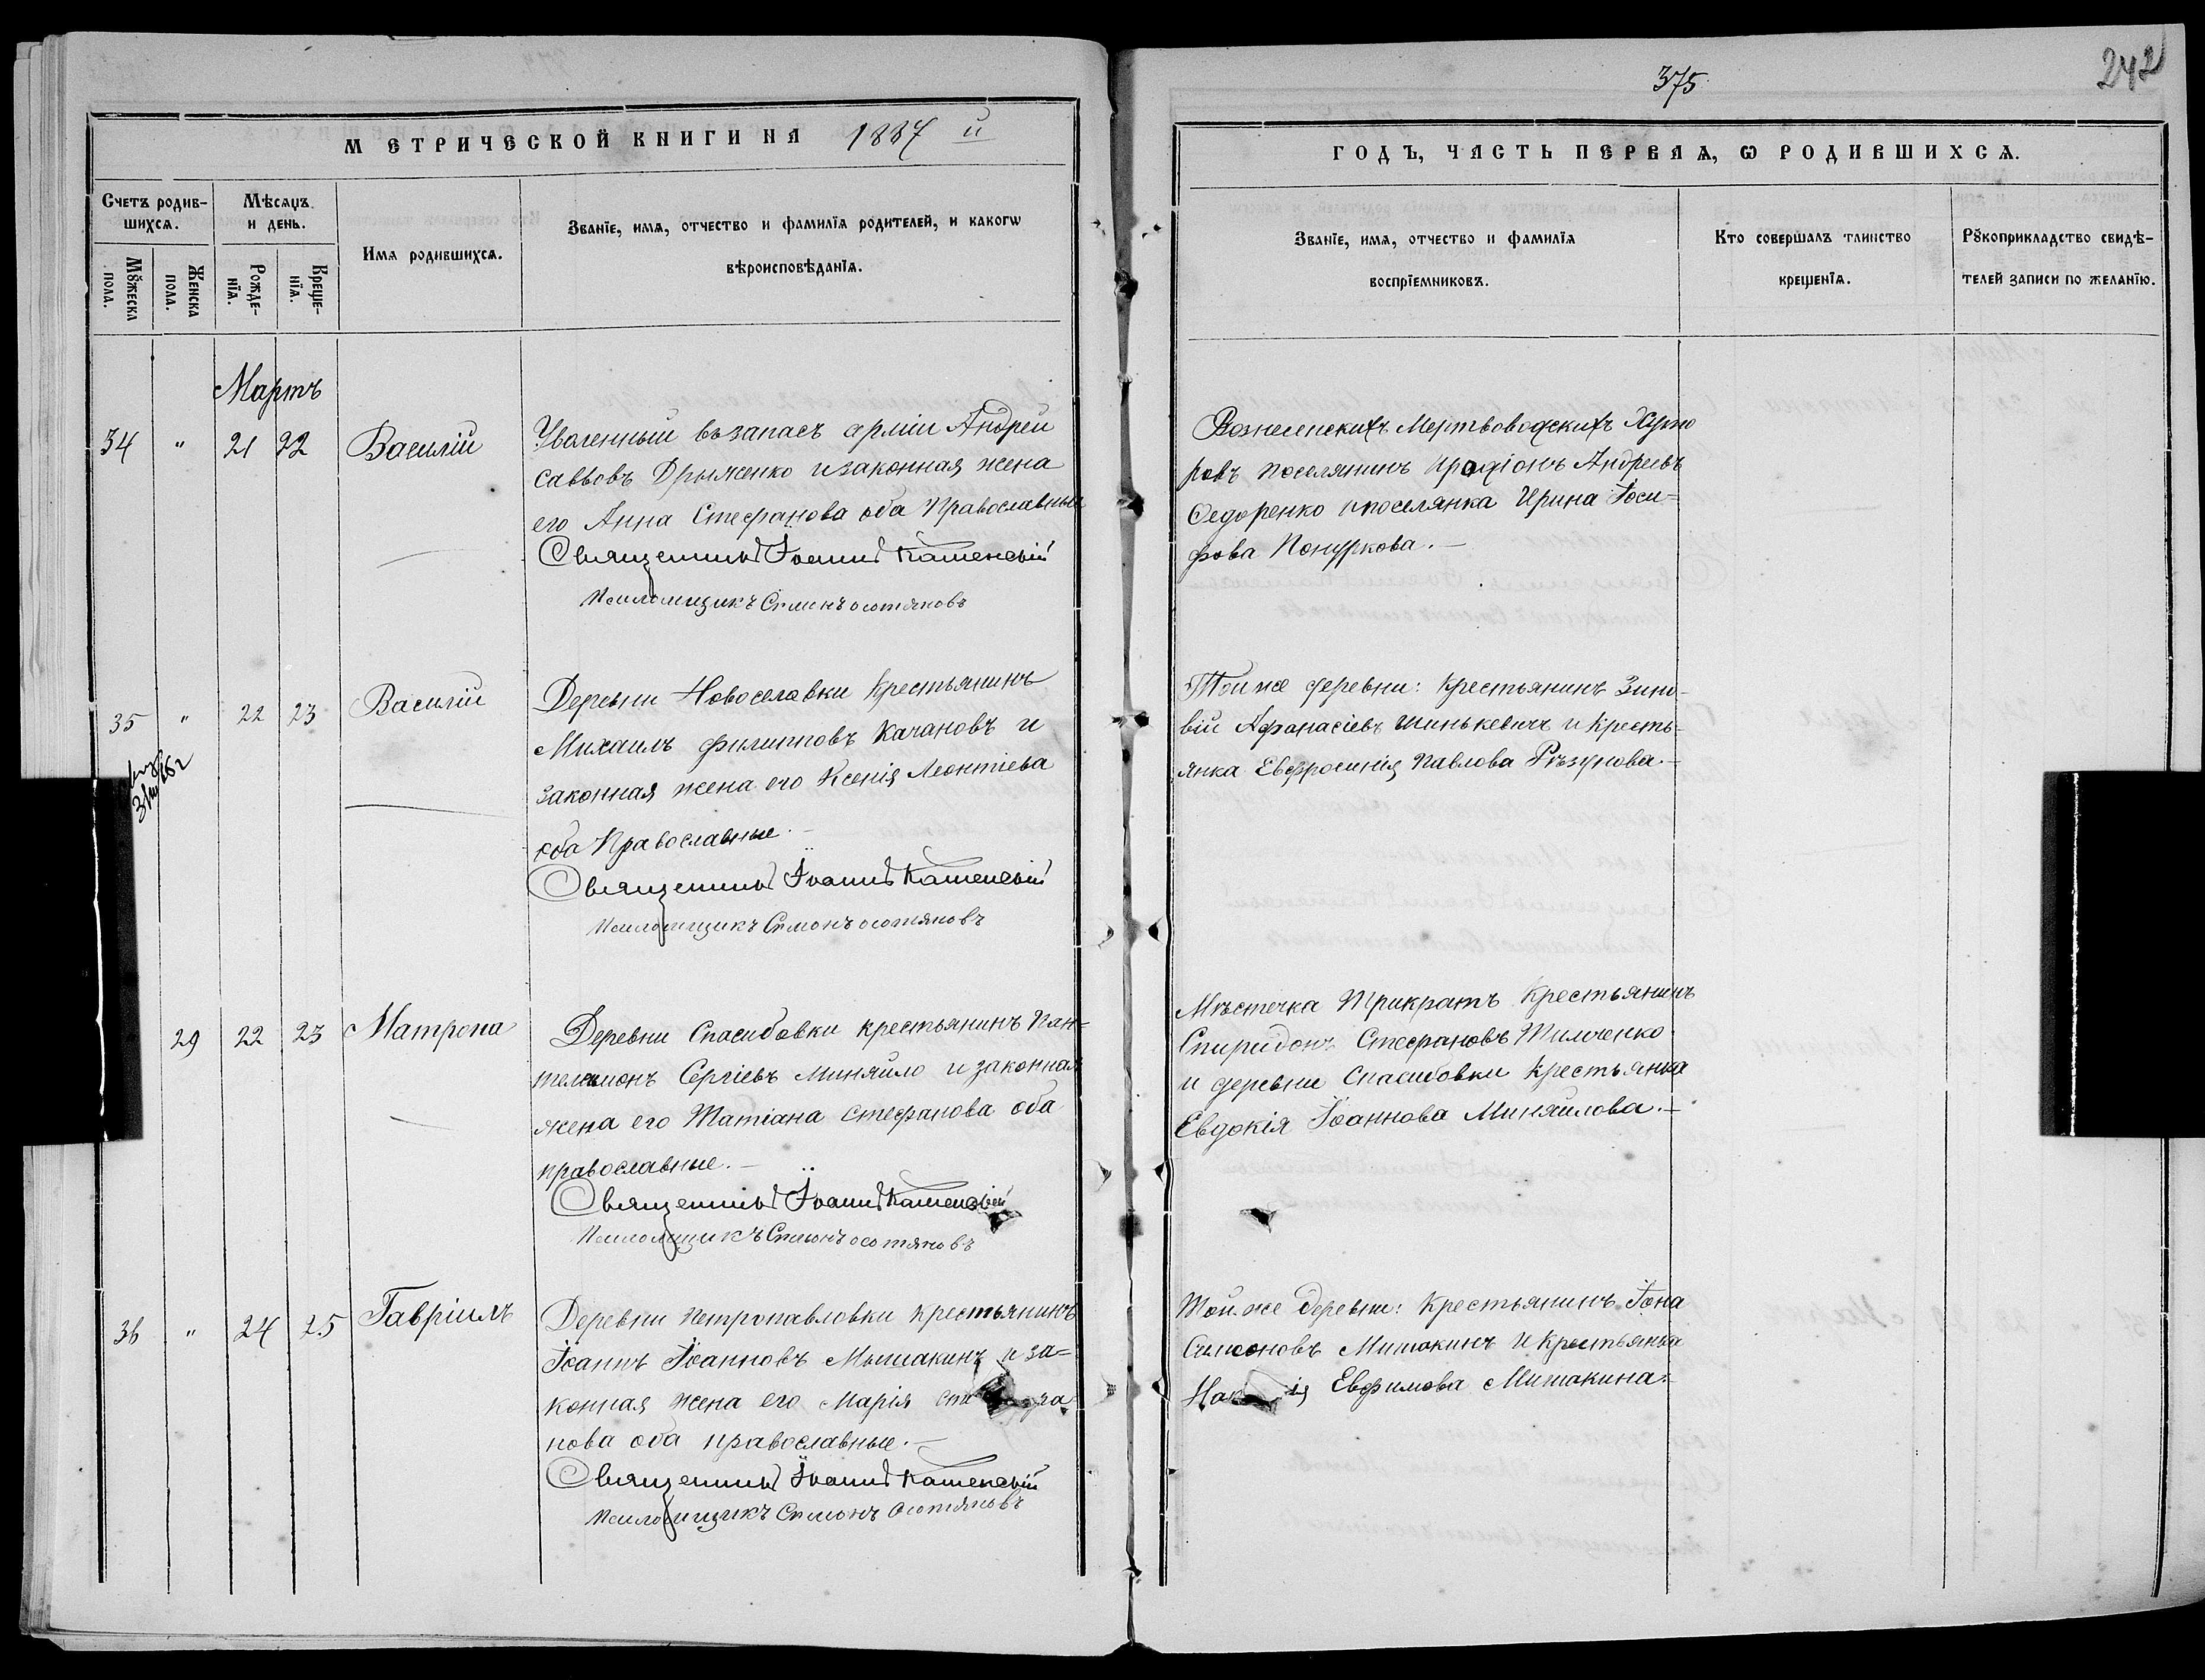 375
242
МЕТРИЧЕСКОЙ КНИГИ НА 1887 й
ГОДЪ, ЧАСТЬ ПЕРВАЯ, Ѡ РОДИВШИХСЯ.
Счетъ родив-
шихсѧ.
Мѣсѧцъ
и день.
Имѧ родившихсѧ.
Званїе, имѧ, отчество и фамилїѧ родителей, и какогѡ
вѣроисповѣданїѧ.
Мꙋжеска
пола.
Женска
пола.
Рожде-
нїѧ.
Креще-
нїѧ.
Званїе, имѧ, отчество и фамилїѧ
воспрїемниковъ.
Кто совершалъ таинство
крещенїѧ.
Рꙋкоприкладство свидѣ-
телей записи по желанїю.
Мартъ
34 " 21 22 Василій
Уволенный въ запасъ арміи Андрей
Саввовъ Дрыженко и законная жена
его Анна Стефанова оба Православные
Священникъ Іоаннъ Каменскій
Псаломщикъ Симонъ Осотяновъ
Вознесенскихъ Мертвоводскихъ Хуто
ровъ поселянинъ Иродіонъ Андреевъ
Ѳедоренко и поселянка Ирина Іоси-
фова Понуркова.-
35 " 22 23 Василій
Деревни Новоселавки Крестьянинъ
Михаилъ Филипповъ Качановъ и
законная жена его Ксенія Леонтіева
оба Православные.-
Священникъ Іоаннъ Каменскій
Псаломщикъ Симонъ Осотяновъ
Той же деревни: Крестьянинъ Зино-
вій Афанасіевъ Шинькевичъ и Кресть-
янка Евфросинія Павлова Рѣзунова.-
29 22 23 Матрона
Деревни Спасибовки крестьянинъ Пан-
телеимонъ Сергіевъ Миняйло и законная
жена его Татіана Стефанова оба
православные.-
Священникъ Іоаннъ Каменскій
Псаломщикъ Симонъ Осотяновъ
Мѣстечка Трикратъ Крестьянинъ
Спиридонъ Стефановъ Тимченко
и деревни Спасибовки Крестьянка
Евдокія Іоаннова Миняйлова.-
36 " 24 25 Гавріилъ
Деревни Петропавловки крестьянинъ
Іоаннъ Іоанновъ Мишакинъ и за=
конная жена его Марія Сте
нова оба православные.-
Священникъ Іоаннъ Каменскій
Псаломщикъ Симонъ Осотяновъ
Той же деревни: Крестьянинъ Іона
Симеоновъ Мишакинъ и Крестьянка
Евфимова Мишакина.-